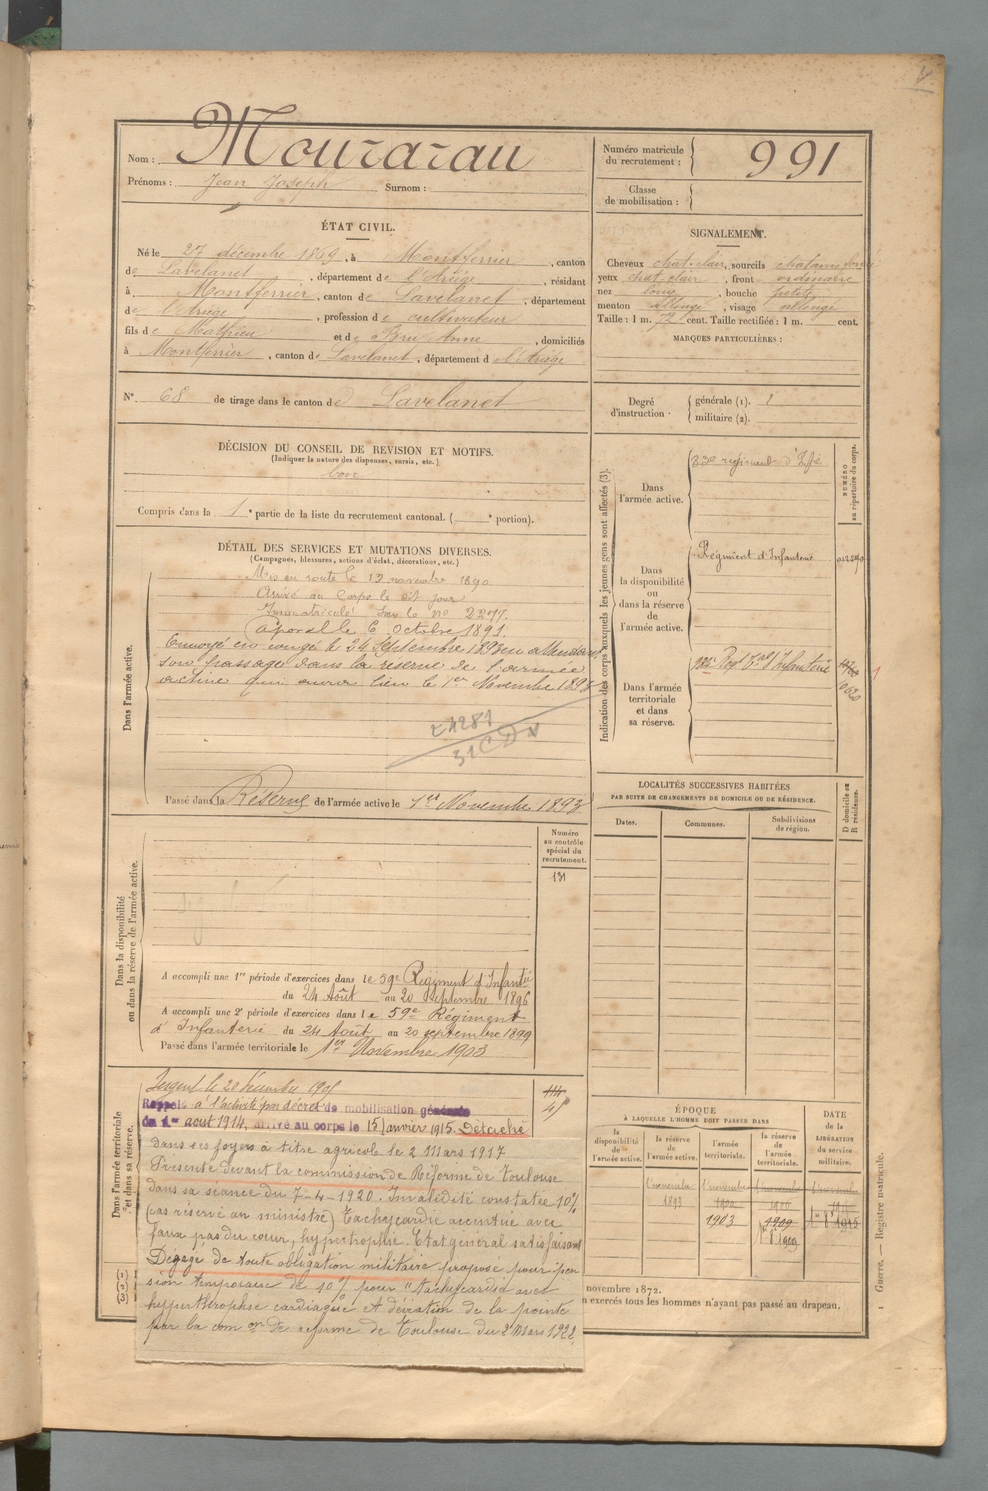 Nom : Mourarau
Prénoms : Jean Joseph Surnom :
Numéro matricule du recrutement : 991
Classe de mobilisation :
ÉTAT CIVIL.
Né le 27 décembre 1869, à Montferrier, canton
de Lavelanet, département de l'Ariège, résidant
à Montferrier, canton de Lavelanet, département
de l'Ariège, profession de cultivateur
fils de Mathieu et de Bru Anne, domiciliés
à Montferrier, canton de Lavelanet, département d l'Ariège
N° 68 de tirage dans le canton de Lavelanet
SIGNALEMENT.
Cheveux chat. clair, sourcils chatains foncé
yeux chat. clair, front ordinaire
nez long, bouche petite
menton allongé, visage allongé
Taille : 1 m. 72 cent. Taille rectifiée : 1 m. cent.
MARQUES PARTICULIÈRES :
Degré d'instruction : générale (1). 2
militaire (2).
DÉCISION DU CONSEIL DE REVISION ET MOTIFS.
(Indiquer la nature des dispenses, sursis, etc.)
bon
Compris dans la 1e partie de la liste du recrutement cantonal. ( e portion).
DÉTAIL DES SERVICES ET MUTATIONS DIVERSES.
(Campagnes, blessures, actions d'éclat, décorations, etc.)
Dans l'armée active.
Mis en route le 12 novembre 1890
Arrivé au Corps le dit jour
Immatriculé sous le no 2277.
Caporal le 6 Octobre 1891.
Envoyé en congé le 24 Septembre 1893 en attendant
son passage dans la réserve de l'armée
active qui aura lieu le 1er Novembre 1893
24281
Passé dans la Réserve de l'armée active le 1er Novembre 1893
Indication des corps auxquels les jeunes gens sont affectés (3).
NUMÉRO au répertoire du corps.
Dans l'armée active.
83e régiment d'Ifie
Dans la disponibilité ou dans la réserve de l'armée active.
Régiment d'Infanterie
Dans l'armée territoriale et dans sa réserve.
Regt Tal d'Infanterie
LOCALITÉS SUCCESSIVES HABITÉES
PAR SUITE DE CHANGEMENTS DE DOMICILE OU DE RÉSIDENCE.
Dates. Communes. Subdivisions de région. D domicile ou R résidence.
Dans la disponibilité ou dans la réserve de l'armée active.
Numéro au contrôle spécial du recrutement.
131
A accompli une 1re période d'exercices dans le 59e Régiment d'Infantie
du 24 Août au 20 Septembre 1896
A accompli une 2e période d'exercices dans le 59e Régiment
d'Infanterie du 24 Août au 20 septembre 1899
Passé dans l'armée territoriale le 1er Novembre 1903
Dans l'armée territoriale et dans sa réserve.
Rappelé à l'activité par décret de mobilisation générale
du 1er aout 1914, arrivé au corps le 15 Janvier 1915. Détaché
dans ses foyers à titre agricole le 2 Mars 1917
Présenté devant la commission de Réforme de Toulouse
dans sa séance du 7-4-1920. Invalidité constatée 10%
(cas réservé au ministre) Tachycardie accentuée avec
faux pas du cœur, hypertrophie. Etat général satisfaisant
Dégagé de toute obligation militaire proposé pour pen
sion temporaire de 10% pour "tachycardie avec
hyperthrophie cardiaque et déviation de la pointe
par la com on de réforme de Toulouse du 2 Mars 1922
ÉPOQUE
À LAQUELLE L'HOMME DOIT PASSER DANS
la disponibilité de l'armée active. la réserve de l'armée active. l'armée territoriale. la réserve de l'armée territoriale.
DATE de la LIBÉRATION du service militaire.
1 novembre 1893
1 novembre 1903
1909
novembre 1872.
n exercés tous les hommes n'ayant pas passé au drapeau.
1 Guerre. — Registre matricule.